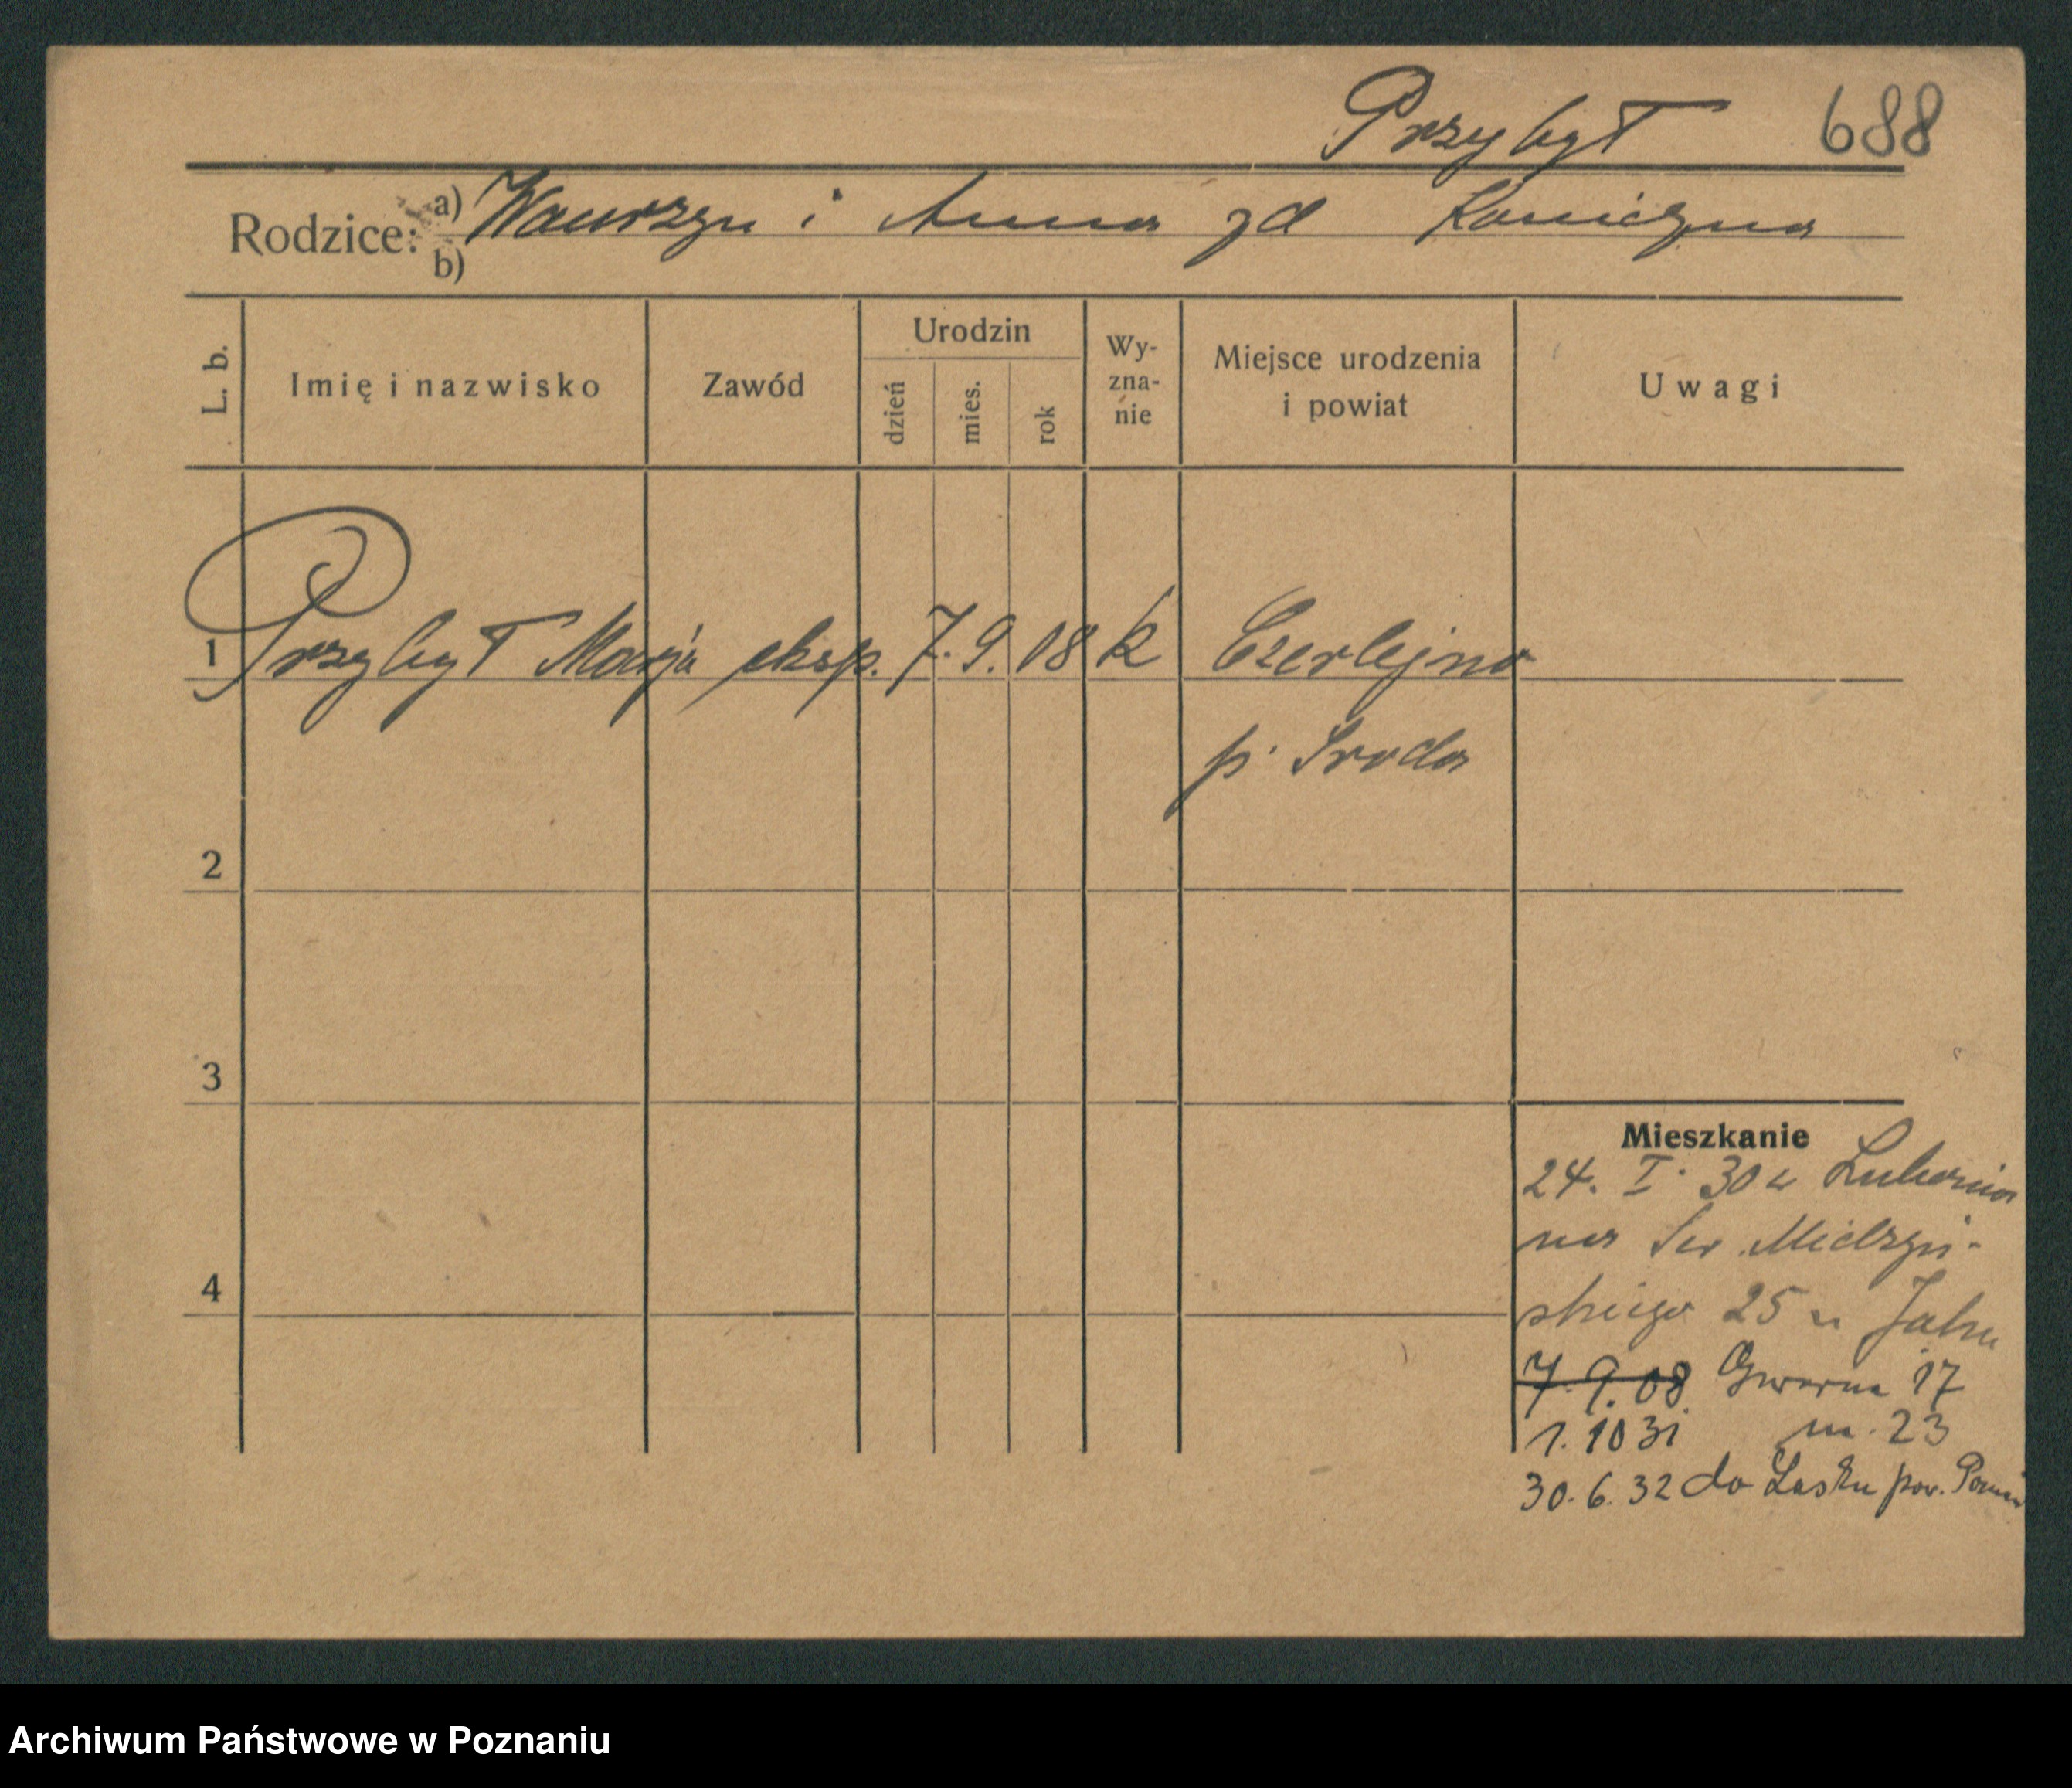 Przybył 688
Rodzice: a) Wawrzyn i Anna zd Konieczna
b)
L. b.
Imię i nazwisko
Zawód
Urodzin
dzień
mies.
rok
Wy-
zna-
nie
Miejsce urodzenia
i powiat
Uwagi
1 Przybył Marja eksp. 7. 9. 08 k Czerlejno
p. Sroda
2
3
4
Mieszkanie
24. I. 30 z Lubonia
na Sew. Mielżyń-
skiego 25 u Jahn
7. 9. 08 Gwarna 17
1. 10 31 m. 23
30. 6. 32 do Lasku pow. Poznań
Archiwum Państwowe w Poznaniu